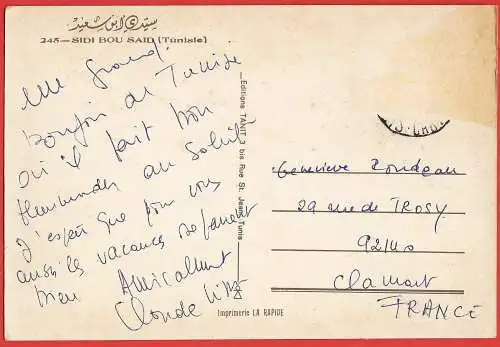 سيدي ابو سعيد
245 — SIDI BOU SAID (Tunisie)
Bonjour de Tunisie
où il fait bon
au Soleil
J'espère que pour vous
aussi les vacances se passent
bien Amicalement
Claude
Editions TANIT 3 bis Rue St. Jean - Tunis
Imprimerie LA RAPIDE
Geneviève Rondeau
29 rue de TROSY
92140
Clamart
FRANCE